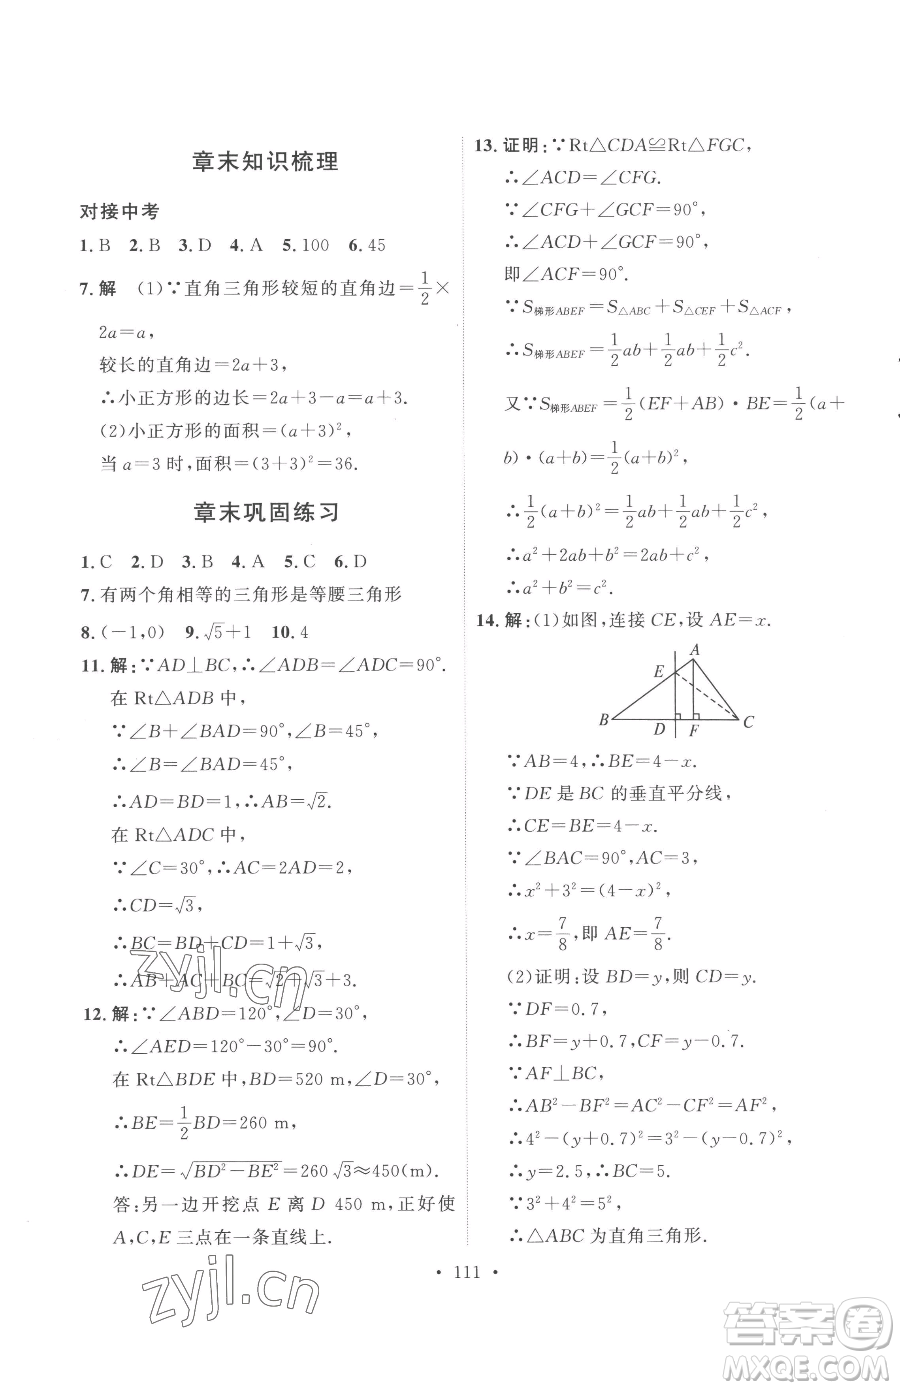 章末知识梳理
对接中考
1.B 2.B 3.D 4.A 5.100 6.45
7.解 (1)∵直角三角形较短的直角边=1/2×
2a=a,
较长的直角边=2a+3,
∴小正方形的边长=2a+3-a=a+3.
(2)小正方形的面积=(a+3)²,
当a=3时,面积=(3+3)²=36.
章末巩固练习
1.C 2.D 3.B 4.A 5.C 6.D
7.有两个角相等的三角形是等腰三角形
8.(-1,0) 9.√5+1 10.4
11.解:∵AD⊥BC,∴∠ADB=∠ADC=90°.
在Rt△ADB中,
∵∠B+∠BAD=90°,∠B=45°,
∴∠B=∠BAD=45°,
∴AD=BD=1,∴AB=√2.
在Rt△ADC中,
∵∠C=30°,∴AC=2AD=2,
∴CD=√3,
∴BC=BD+CD=1+√3,
∴AB+AC+BC=√2+√3+3.
12.解:∵∠ABD=120°,∠D=30°,
∴∠AED=120°-30°=90°.
在Rt△BDE中,BD=520 m,∠D=30°,
∴BE=1/2BD=260 m,
∴DE=√(BD²-BE²)=260√3≈450(m).
答:另一边开挖点E离D 450 m,正好使
A,C,E三点在一条直线上.
13.证明:∵Rt△CDA≌Rt△FGC,
∴∠ACD=∠CFG.
∵∠CFG+∠GCF=90°,
∴∠ACD+∠GCF=90°,
即∠ACF=90°.
∵S梯形ABEF=S△ABC+S△CEF+S△ACF,
∴S梯形ABEF=1/2ab+1/2ab+1/2c².
又∵S梯形ABEF=1/2(EF+AB)·BE=1/2(a+
b)·(a+b)=1/2(a+b)²,
∴1/2(a+b)²=1/2ab+1/2ab+1/2c²,
∴a²+2ab+b²=2ab+c²,
∴a²+b²=c².
14.解:(1)如图,连接CE,设AE=x.
A
E
B
D F C
∵AB=4,∴BE=4-x.
∵DE是BC的垂直平分线,
∴CE=BE=4-x.
∵∠BAC=90°,AC=3,
∴x²+3²=(4-x)²,
∴x=7/8,即AE=7/8.
(2)证明:设BD=y,则CD=y.
∵DF=0.7,
∴BF=y+0.7,CF=y-0.7.
∵AF⊥BC,
∴AB²-BF²=AC²-CF²=AF²,
∴4²-(y+0.7)²=3²-(y-0.7)²,
∴y=2.5,∴BC=5.
∵3²+4²=5²,
∴△ABC为直角三角形.
·111·
zyjl.cn
zyjl.cn
答案圈
MXQE.COM